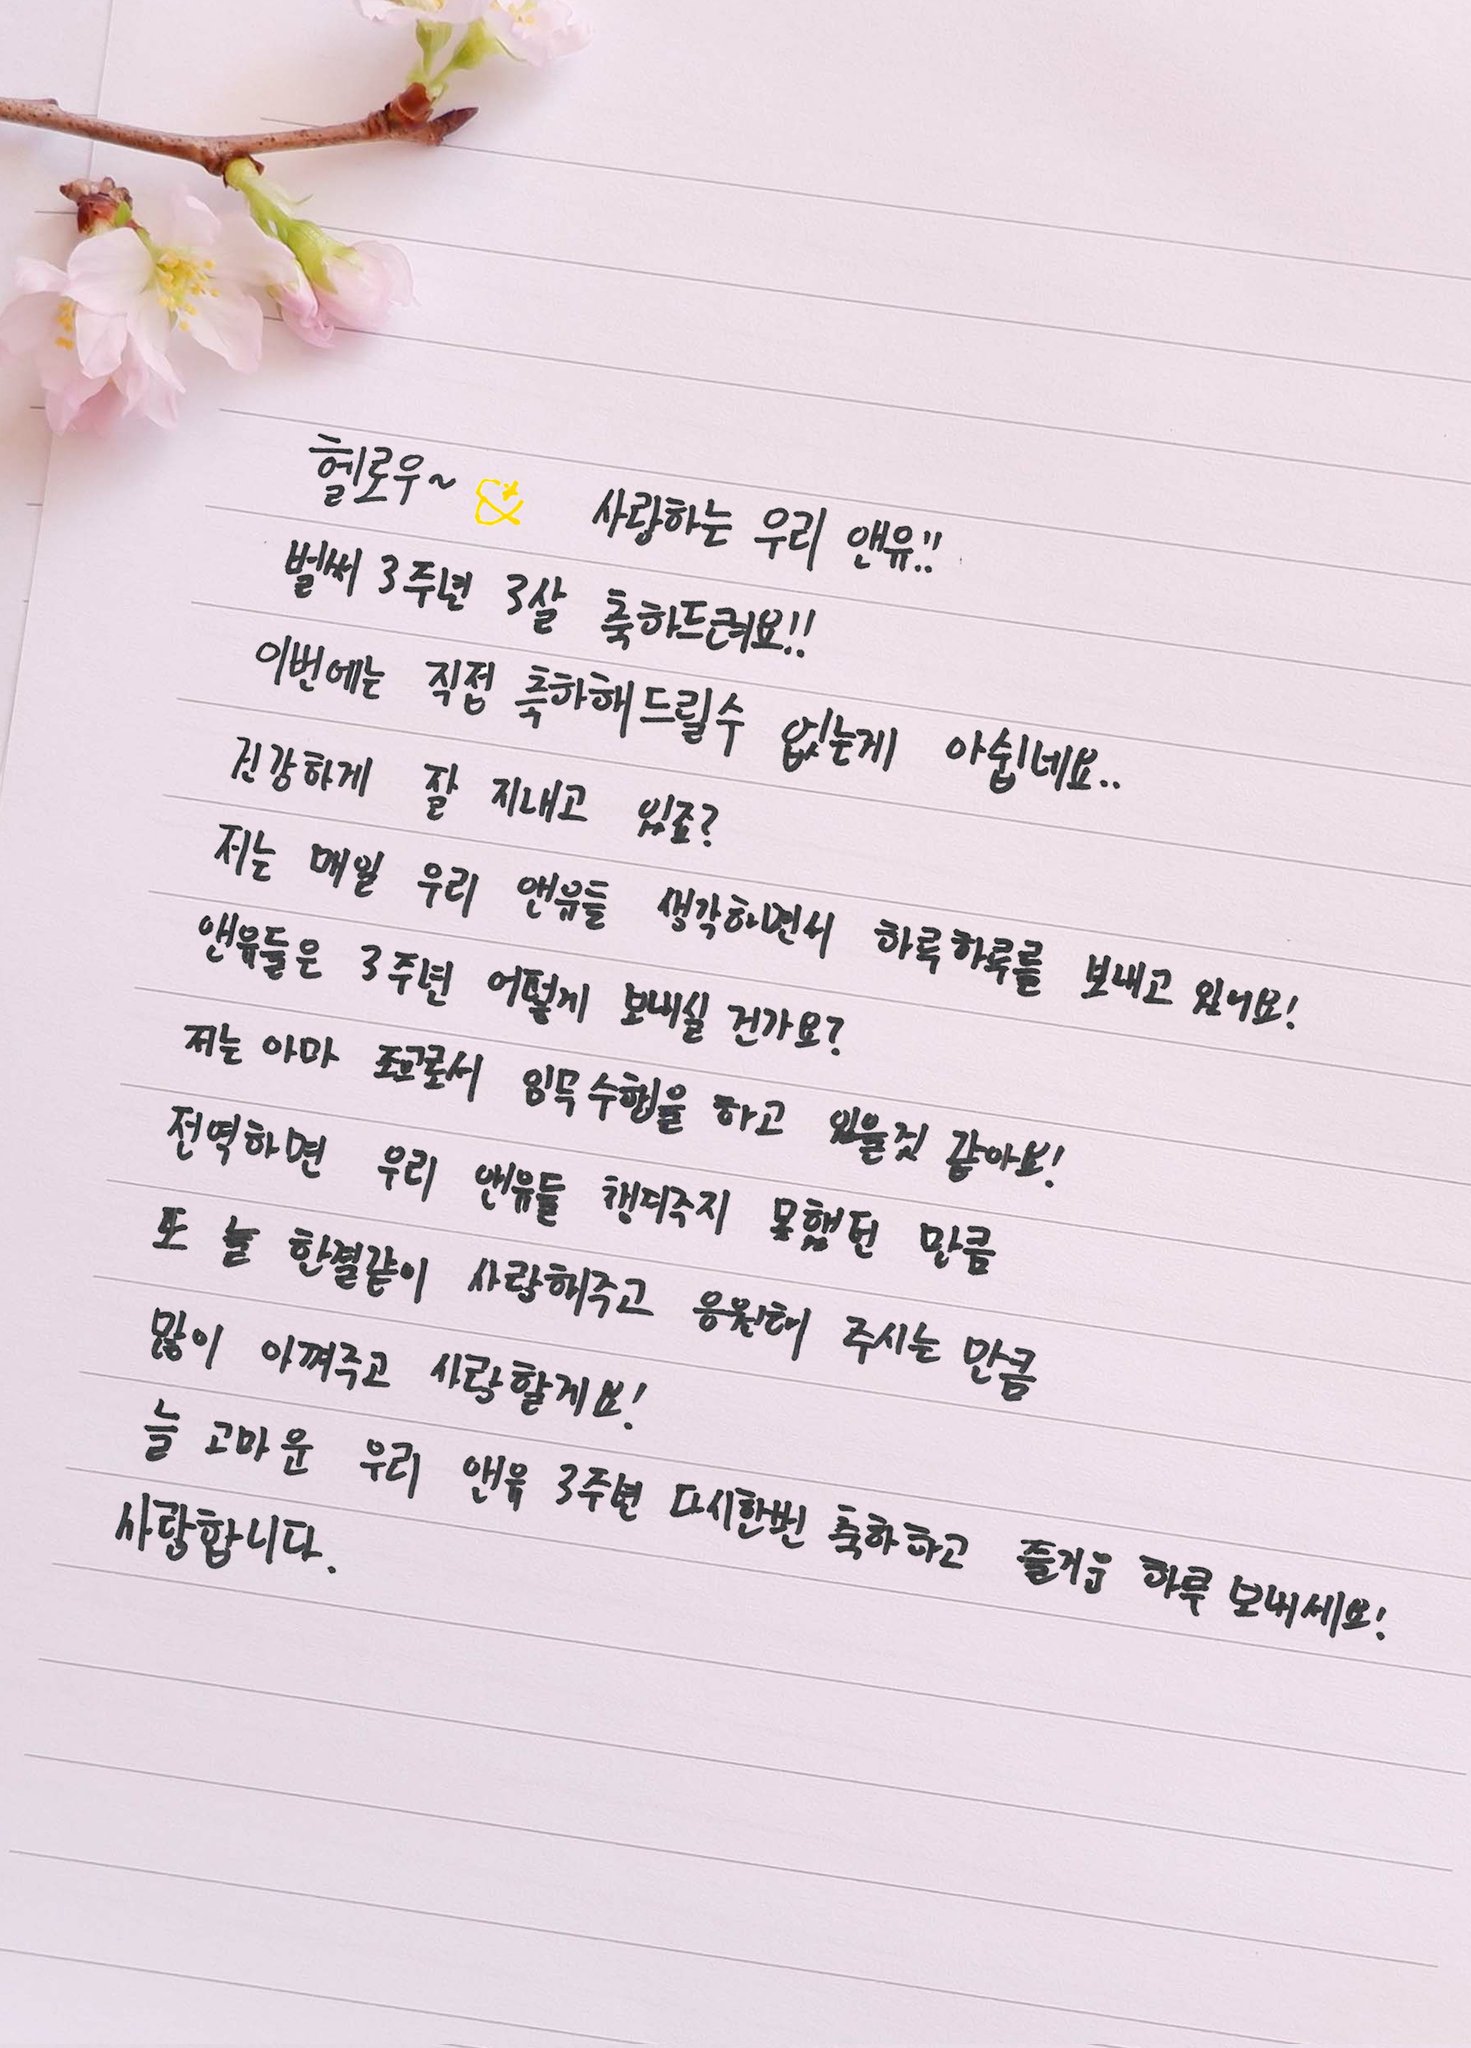 헬로우~ & 사랑하는 우리 앤유!!
벌써 3주년 3살 축하드려요!!
이번에는 직접 축하해드릴수 없는게 아쉽네요..
건강하게 잘 지내고 있죠?
저는 매일 우리 앤유들 생각하면서 하루하루를 보내고 있어요!
앤유들은 3주년 어떻게 보내실 건가요?
저는 아마 조교로서 임무수행을 하고 있을것 같아요!
전역하면 우리 앤유들 챙겨주지 못했던 만큼
또 늘 한결같이 사랑해주고 응원해 주시는 만큼
많이 아껴주고 사랑할게요!
늘 고마운 우리 앤유 3주년 다시한번 축하하고 즐거운 하루 보내세요!
사랑합니다.